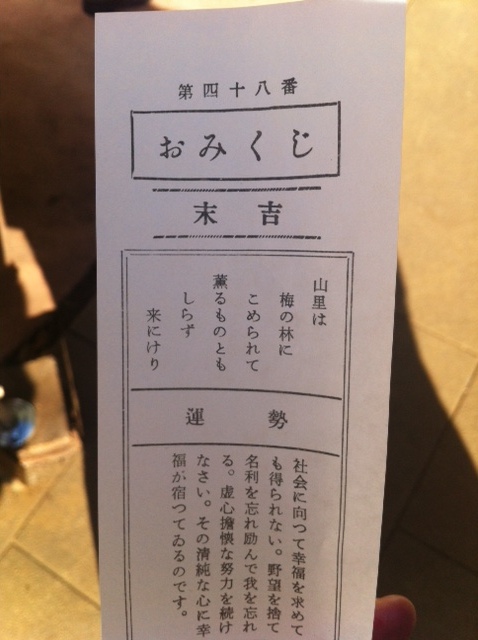 第四十八番
おみくじ
末吉
山里は
梅の林に
こめられて
薫るものとも
しらず
来にけり
運勢
社会に向つて幸福を求めて
も得られない。野望を捨て
名利を忘れ励んで我を忘れ
る。虚心擔懐な努力を続け
なさい。その清純な心に幸
福が宿つてゐるのです。